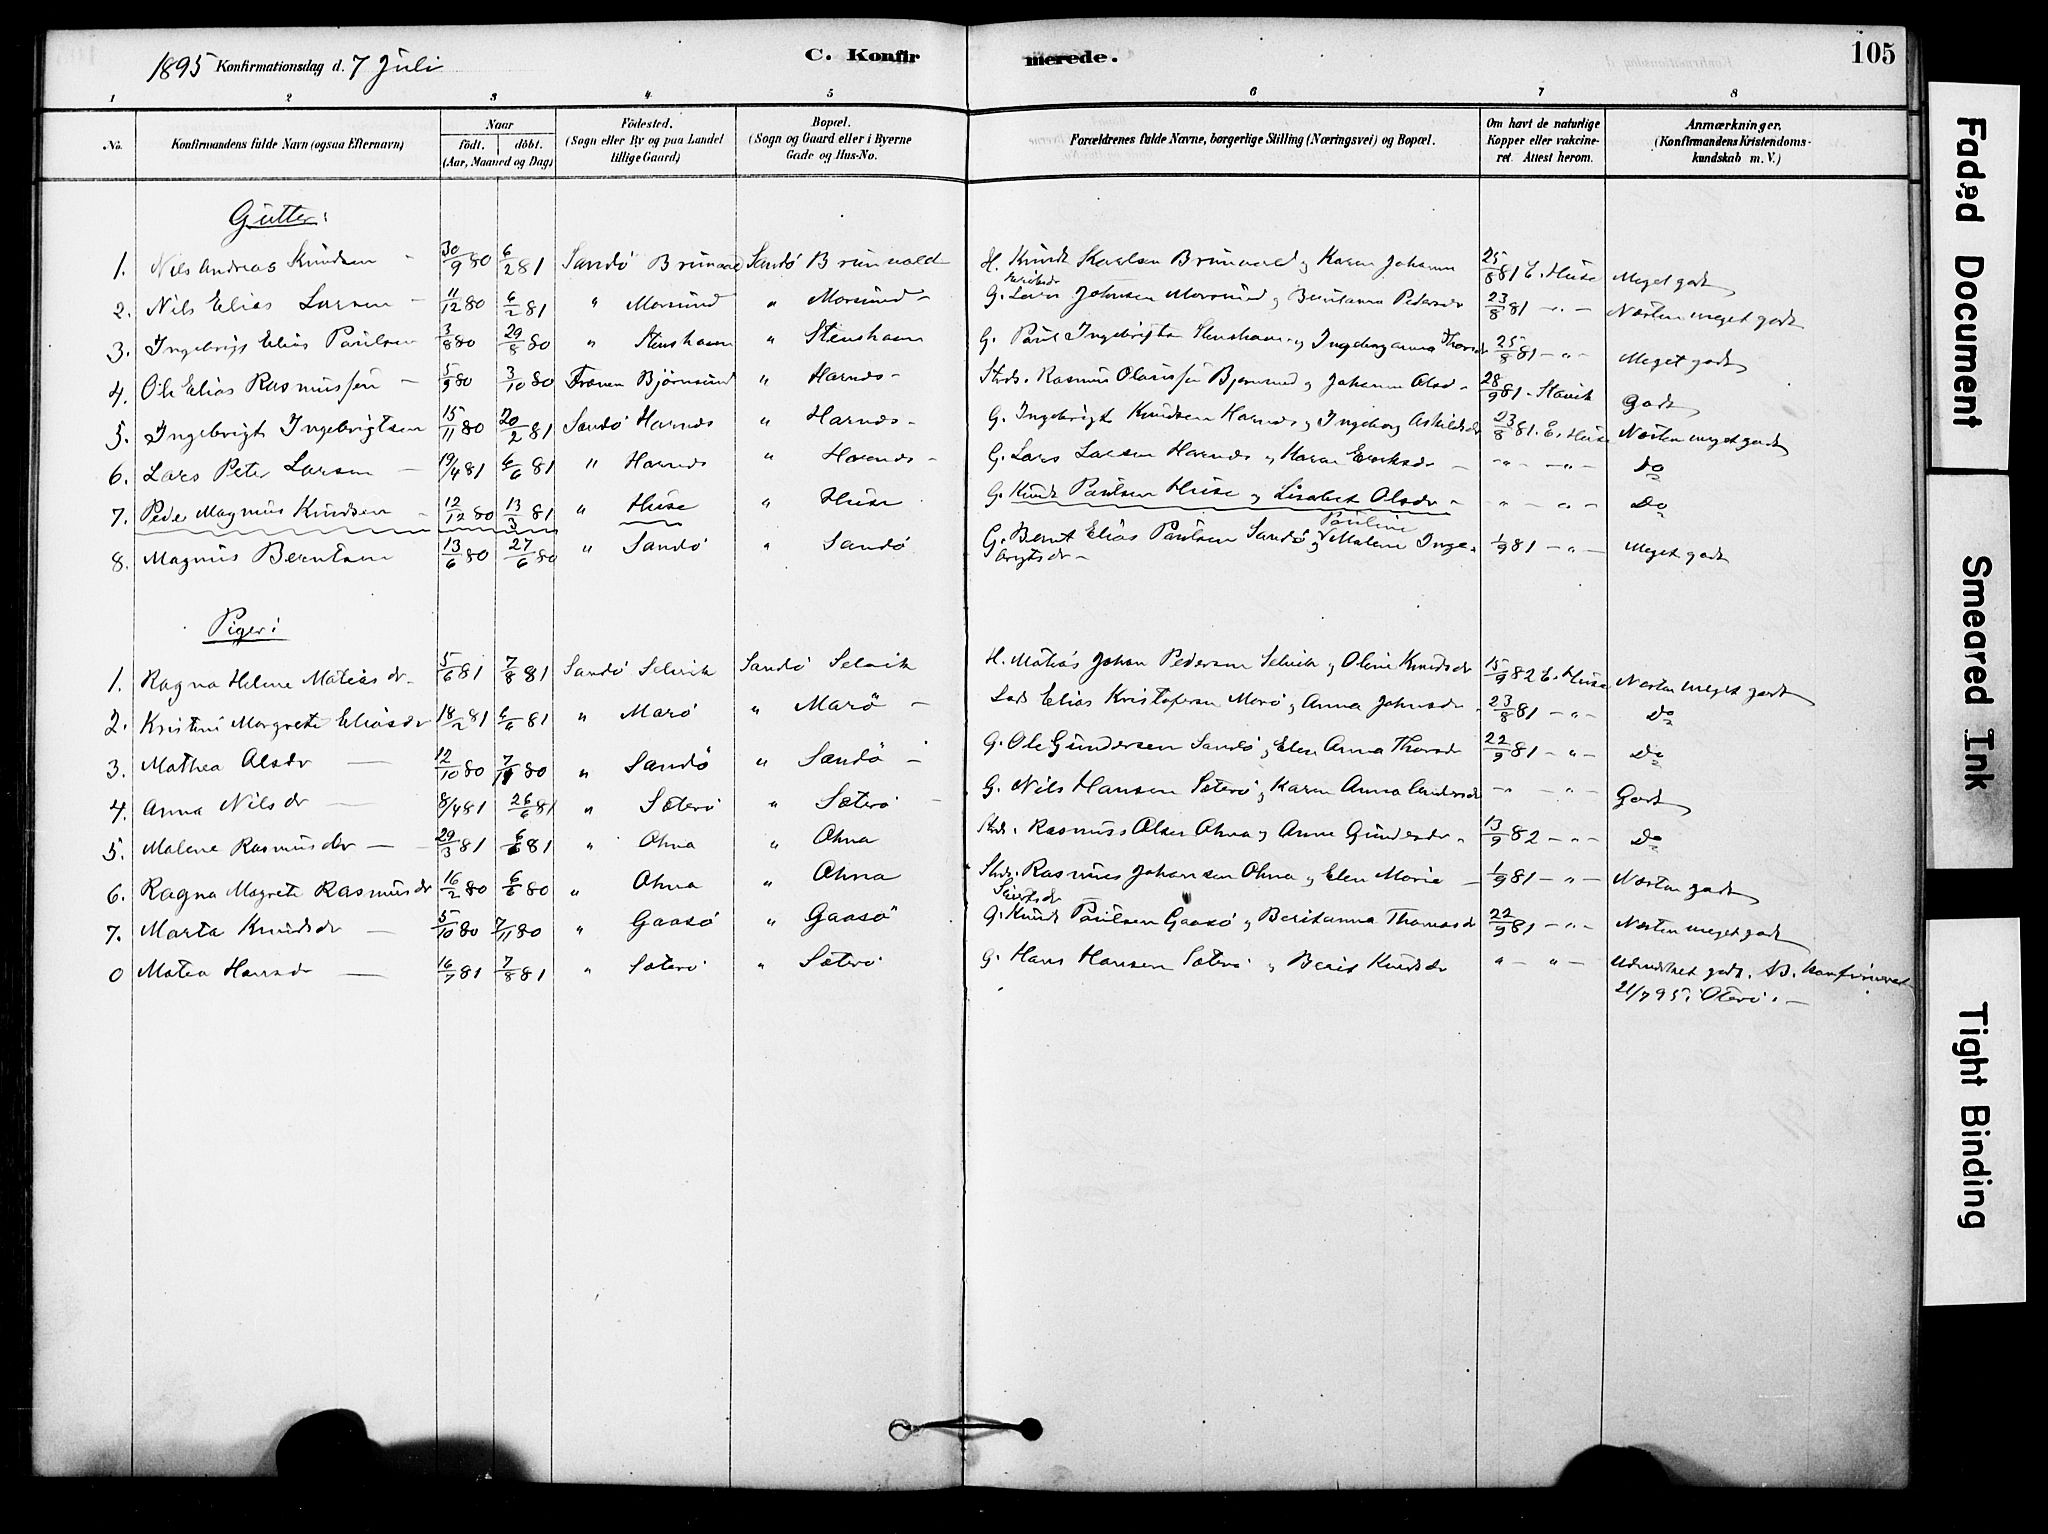 1895 Konfirmationsdag d. 7 Juli
C. Konfir merede.
105
1 2 3 4 5 6 7 8
No.
Konfirmandens fulde Navn (ogsaa Efternavn)
Naar
født. döbt.
(Aar, Maaned og Dag)
Födested.
(Sogn eller By og paa Landet
tillige Gaard)
Bopæl.
(Sogn og Gaard eller i Byerne
Gade og Hus-No.
Forældrenes fulde Navne, borgerlige Stilling (Næringsvei) og Bopæl.
Om havt de naturlige
Kopper eller vakcine-
ret. Attest herom.
Anmærkninger.
(Konfirmandens Kristendoms-
kundskab m. V.)
Gutter:
1. Nils Andreas Knudsen - 30/9 80 6/2 81 Sandö Brunvold Sandö Brunvold H. Knud Brunvold & Karen Johanne 25/8 81 E. Huse Meget godt
2. Nils Elias Larsen - 11/12 80 6/2 81 " Morsund " Morsund - G. Lars Johnsen Morsund & Beritanna Pedersdr 23/8 81 - " - Næsten meget godt
3. Ingebrigt Elias Paulsen 3/8 80 29/8 80 " Stenshavn " Stenshavn G. Paul Ingebrigtsen Stenshavn & Ingeborganna Thorsdr 25/8 81 - " - Meget godt
4. Ole Elias Rasmussen - 5/9 80 3/10 80 Frænen Björnsund " Harnös - Strds. Rasmus Olaussen Bjørnsund & Johanne Olsd - 28/9 81 - Slavik Godt
5. Ingebrigt Ingebrigtsen 15/11 80 20/2 81 Sandö Harnös " Harnös - G. Ingebrigt Knudsen Harnös & Ingeborg Askildsdr 23/8 81. E. Huse Næsten meget godt
6. Lars Peter Larsen - 19/4 81 6/6 81 " Harnös " Harnös - G. Lars Larsen Harnös & Karen Eriksdr - " - " - Do
7. Peder Magnus Knudsen - 12/12 80 13/3 81 " Huse " Huse G. Knud Paulsen Huse & Lisabet Olsdr - " - " - Do
8. Magnus Berntsen 13/6 80 27/6 80 " Sandö " Sandö G. Bernt Elias Paulsen Sandö & Pauline Malene Inge-
brigtsdr - 1/9 81 - " - Meget godt
Piger:
1. Ragna Helene Matiasdr - 5/6 81 7/8 81 Sandö Selvik Sandö Selvik H. Matias Johan Pedersen Selvik & Oline Knudsdr 15/9 82 E. Huse Næsten meget godt
2. Kristine Margrete Eliasdr 18/2 81 6/6 81 " Marö " Marö - Elias Kristofersen Marö & Anna Johnsdr - 23/8 81 - " - Do
3. Mathea Olsdr - 12/10 80 7/11 80 " Sandö " Sandö - G. Ole Gundersen Sandö & Elen Anna Thorsdr 22/9 81 - " - Do
4. Anna Nilsdr - 8/4 81 26/6 81 " Sæterö " Sæterö - G. Nils Hansen Sæterö & Karen Anna Andersdr " - " - Godt
5. Malene Rasmusdr - 29/3 81 6/6 81 " Ohna " Ohna Strds. Rasmus Olsen Ohna & Anne Gundersdr - 13/9 82 - " - Do
6. Ragna Magrete Rasmusdr 16/2 80 6/6 80 " Ohna " Ohna Strds. Rasmus Johansen Ohna & Elen Marie -
Sjurtsdr 1/9 81 - " - Næsten godt
7. Marta Knudsdr - 5/10 80 7/11 80 " Gaasö " Gaasö G. Knud Paulsen Gaasö & Beritanna Thomasdr 22/9 81 - " - Næsten meget godt
0 Matea Hansdr - 16/7 81 7/8 81 " Sæterö " Sæterö G. Hans Hansen Sæterö & Berit Knudsdr " - " - Udmærket godt. NB. Konfirmeret
21/7 95 i Oterö. -
Faded Document
Smeared Ink
Tight Binding